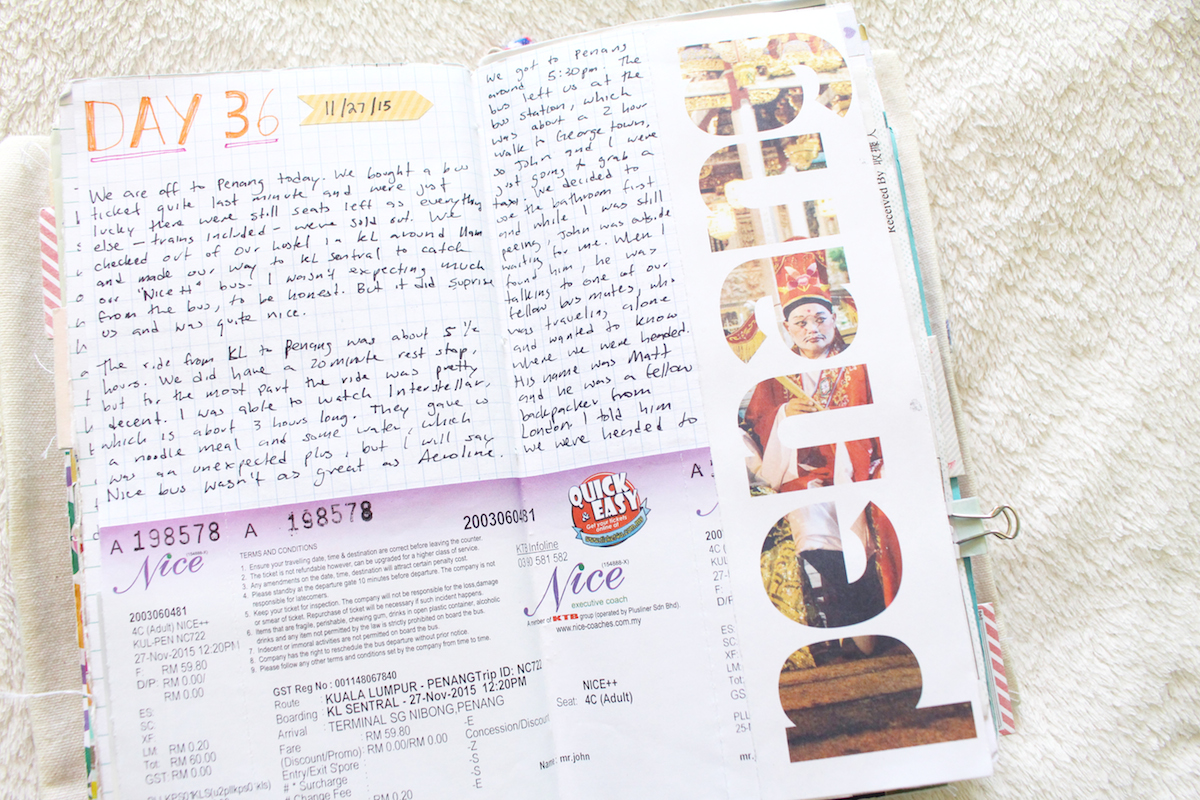 DAY 36
11/27/15
We are off to Penang today. We bought a bus
ticket quite last minute and were just
lucky there were still seats left as everything
else - trains included - were sold out. We
checked out of our hostel in KL around 11am
and made our way to KL Sentral to catch
our "Nice++" bus. I wasn't expecting much
from the bus, to be honest. But it did suprise
us and was quite nice.
The ride from KL to Penang was about 5 1/2
hours. We did have a 20 minute rest stop,
but for the most part the ride was pretty
decent. I was able to watch Interstellar,
which is about 3 hours long. They gave us
a noodle meal and some water, which
was an unexpected plus, but I will say
Nice bus wasn't as great as Aeroline.
We got to Penang
around 5:30pm. The
bus left us at the
bus station, which
was about a 2 hour
walk to Georgetown,
so John and I were
just going to grab a
taxi. We decided to
use the bathroom first
and while I was still
peeing, John was outside
waiting for me. When I
found him, he was
talking to one of our
fellow bus mates, who
was traveling alone
and wanted to know
where we were headed.
His name was Matt
and he was a fellow
backpacker from
London. I told him
we were headed to
penang
Received By 收據人
A 198578 A 198578
2003060481
Nice
(154888-X)
TERMS AND CONDITIONS
1. Ensure your travelling date, time & destination are correct before leaving the counter.
2. The ticket is not refundable however, can be upgraded for a higher class of service.
3. Any amendments on the date, time, destination will attract certain penalty cost.
4. Please standby at the departure gate 10 minutes before departure. The company is not
responsible for latecomers.
5. Keep your ticket for inspection. The company will not be responsible for the loss,damage
or smear of ticket. Repurchase of ticket will be necessary if such incident happens.
6. Items that are fragile, perishable, chewing gum, drinks in open plastic container, alcoholic
drinks and any item not permitted by the law is strictly prohibited on board the bus.
7. Indecent or immoral activities are not permitted on board the bus.
8. Company has the right to reschedule the bus departure without prior notice.
9. Please follow any other terms and conditions set by the company from time to time.
2003060481
4C (Adult) NICE++
KUL-PEN NC722
27-Nov-2015 12:20PM
F: RM 59.80
D/P: RM 0.00/
RM 0.00
ES:
SC:
XF:
LM: RM 0.20
Tot: RM 60.00
GST: RM 0.00
GST Reg No : 001148067840
Route : KUALA LUMPUR - PENANG Trip ID: NC722
Boarding : KL SENTRAL - 27-Nov-2015 12:20PM
Arrival TERMINAL SG NIBONG,PENANG
Fare : RM 59.80
(Discount/Promo) : RM 0.00/RM 0.00
Entry/Exit S'pore
# * Surcharge
# Change Fee
RM 0.20
-E
Concession/Discount
-Z
-S
-S
-E
QUICK
& EASY
Get your tickets
online at
KTB Infoline
03 581 582
Nice
(154888-X)
executive coach
A member of KTB group (operated by Plusliner Sdn Bhd).
www.nice-coaches.com.my
NICE++
Seat: 4C (Adult)
Name: mr.john
A
200
4C (
KUL
27-
F:
D/F
ES:
SC:
XF:
LM:
To
GS
PLL
25-
mr.